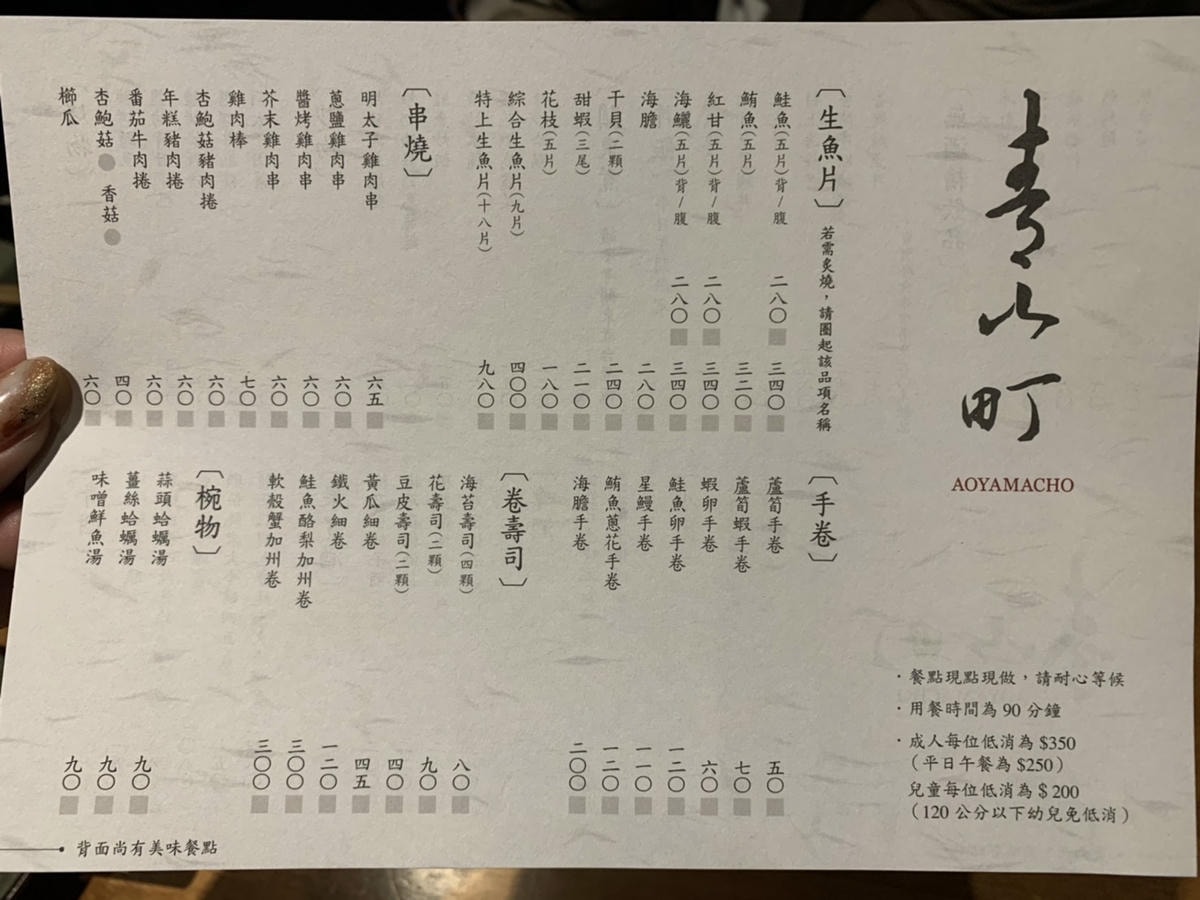 青山町
AOYAMACHO
・餐點現點現做，請耐心等候
・用餐時間為 90 分鐘
・成人每位低消為 $350
（平日午餐為 $250）
兒童每位低消為 $ 200
（120 公分以下幼兒免低消）
〔生魚片〕若需炙燒，請圈起該品項名稱
鮭魚（五片）背/腹 二八〇 三四〇
鮪魚（五片） 三二〇
紅甘（五片）背/腹 二八〇 三四〇
海鱺（五片）背/腹 二八〇 三四〇
海膽 二八〇
干貝（二顆） 二四〇
甜蝦（三尾） 二一〇
花枝（五片） 一八〇
綜合生魚片（九片） 四〇〇
特上生魚片（十八片） 九八〇
〔串燒〕
明太子雞肉串 六五
蔥鹽雞肉串 六〇
醬烤雞肉串 六〇
芥末雞肉串 六〇
雞肉棒 七〇
杏鮑菇豬肉捲 六〇
年糕豬肉捲 六〇
番茄牛肉捲 六〇
杏鮑菇 香菇 四〇
櫛瓜 六〇
〔手卷〕
蘆筍手卷 五〇
蘆筍蝦手卷 七〇
蝦卵手卷 六〇
鮭魚卵手卷 一二〇
星鰻手卷 一一〇
鮪魚蔥花手卷 一二〇
海膽手卷 二〇〇
〔卷壽司〕
海苔壽司（四顆） 八〇
花壽司（二顆） 九〇
豆皮壽司（二顆） 四〇
黃瓜細卷 四五
鐵火細卷 一二〇
鮭魚酪梨加州卷 三〇〇
軟殼蟹加州卷 三〇〇
〔椀物〕
蒜頭蛤蠣湯 九〇
薑絲蛤蠣湯 九〇
味噌鮮魚湯 九〇
背面尚有美味餐點